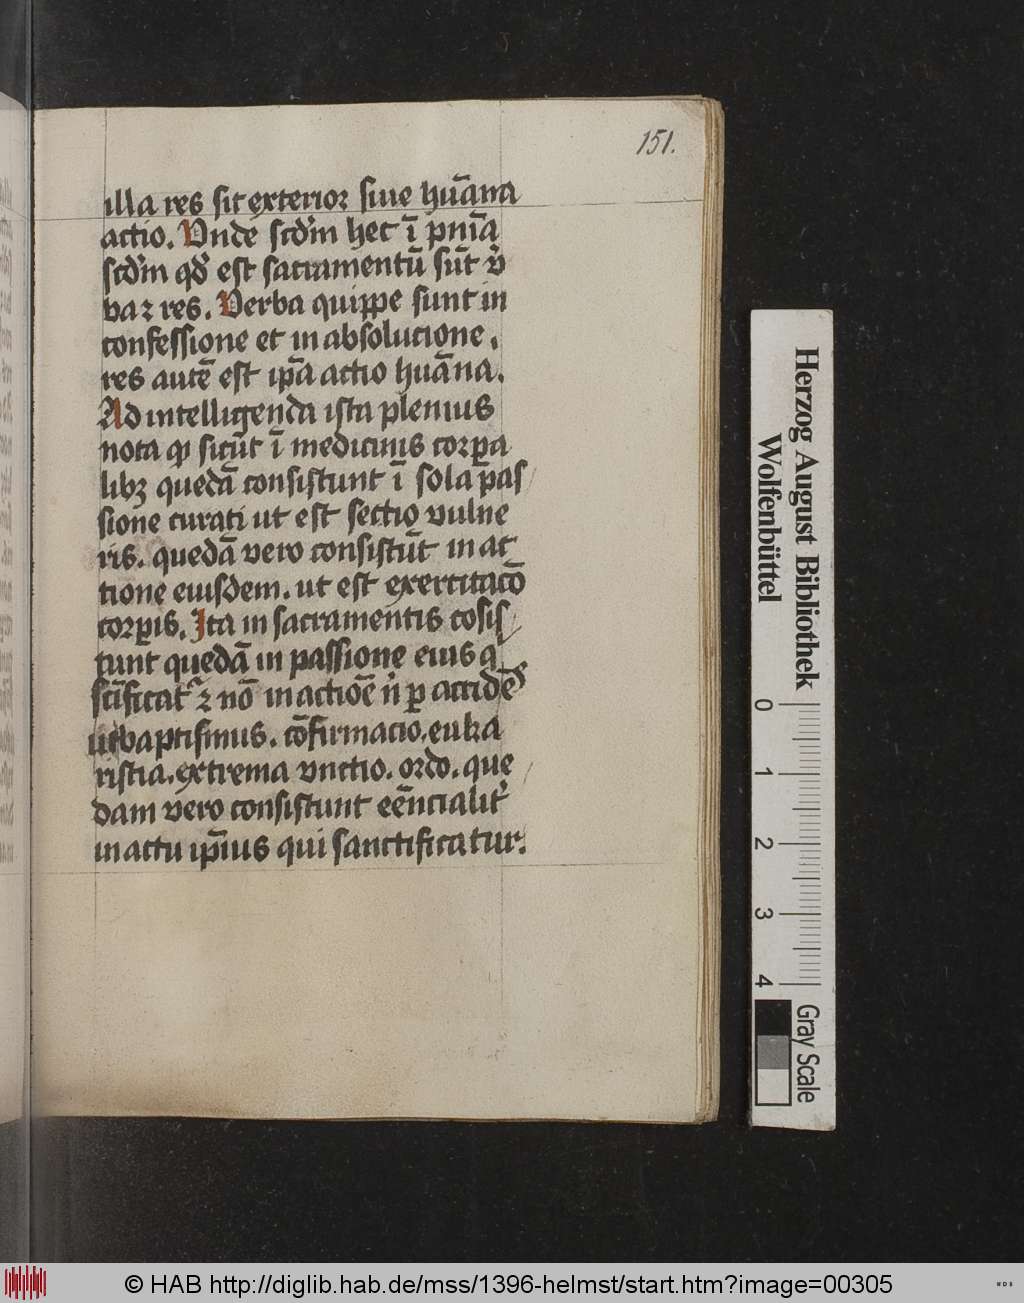 151.
illa res sit exterior siue hūana
actio. Vnde scd'm hec ī pn̄ia
scd'm qd' est sacramentū sūt v̓
ba ꝛ res. Verba quippe sunt in
confessione et in absolucione.
res autē est ip̄a actio hūana.
Ad intelligenda ista plenius
nota ꝙ sicūt ī medicinis corꝑa
libꝫ quedā consistunt ī sola pas
sione curati ut est sectio vulne
ris. quedā vero consistūt in ac
tione eiusdem. ut est exercitacō
corꝑis. Ita in sacramentis cosis
tunt quedā in passione eius q
sc̄ificat᷑ ꝛ nō in actiōe n̓ ꝑ accidēs
ut baptismus. cōfirmacio. euka
ristia. extrema vnctio. ordo. que
dam vero consistunt eēncialit᷑
in actu ip̄ius qui sanctificatur.
Herzog August Bibliothek
Wolfenbüttel
0 1 2 3 4
Gray Scale
© HAB http://diglib.hab.de/mss/1396-helmst/start.htm?image=00305